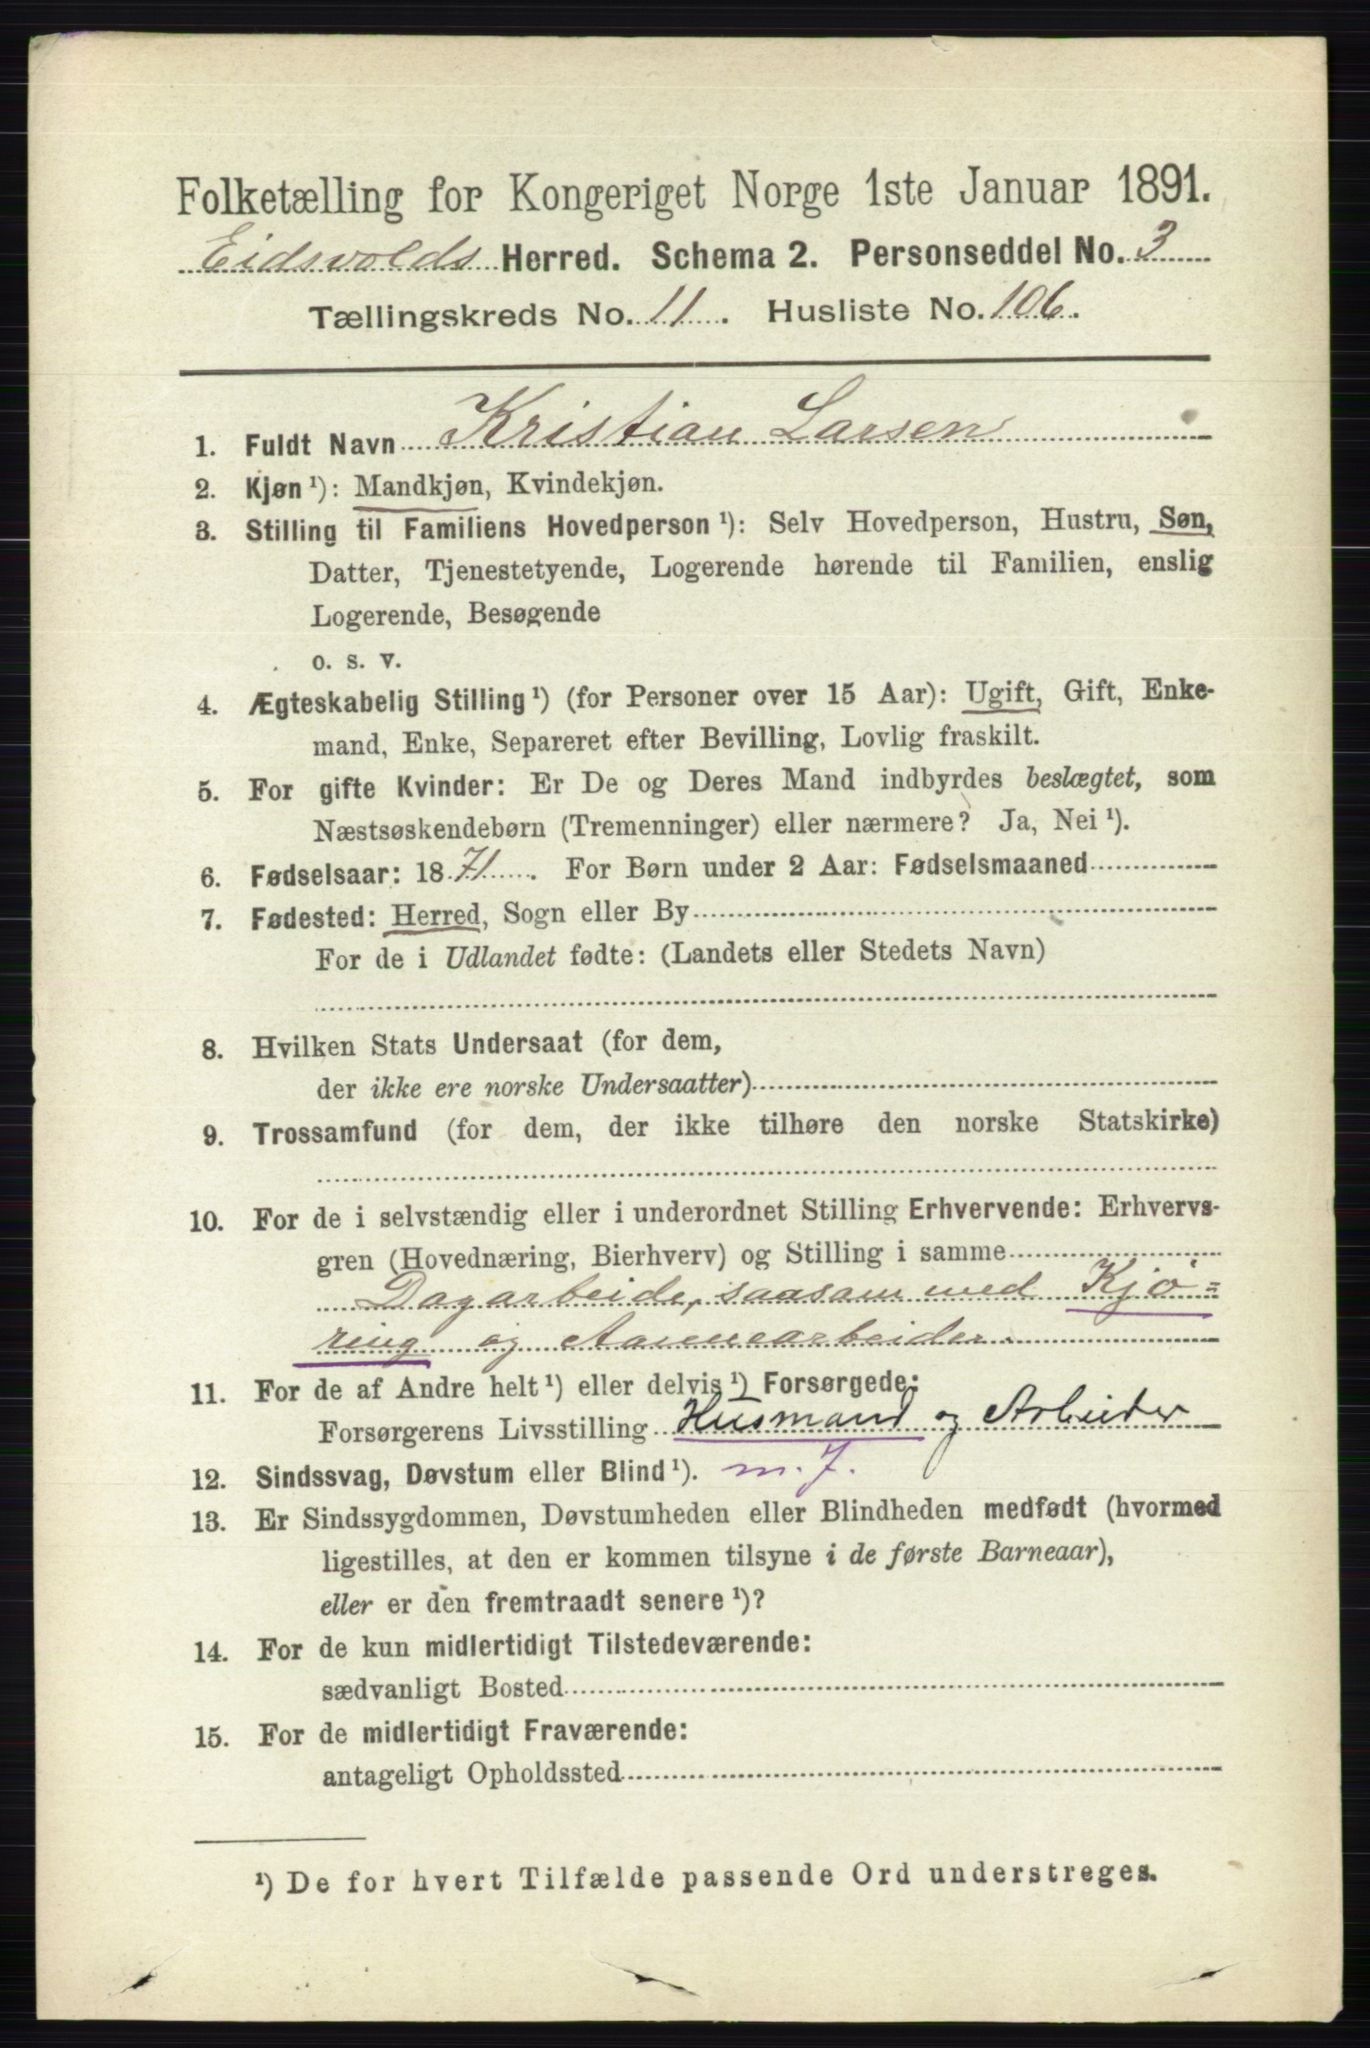 Folketælling for Kongeriget Norge 1ste Januar 1891.
Eidsvolds Herred. Schema 2. Personseddel No. 3
Tællingskreds No. 11. Husliste No. 106.
1. Fuldt Navn Kristian Larsen
2. Kjøn ¹): Mandkjøn, Kvindekjøn.
3. Stilling til Familiens Hovedperson ¹): Selv Hovedperson, Hustru, Søn,
Datter, Tjenestetyende, Logerende hørende til Familien, enslig
Logerende, Besøgende
o. s. v.
4. Ægteskabelig Stilling ¹) (for Personer over 15 Aar): Ugift, Gift, Enke-
mand, Enke, Separeret efter Bevilling, Lovlig fraskilt.
5. For gifte Kvinder: Er De og Deres Mand indbyrdes beslægtet, som
Næstsøskendebørn (Tremenninger) eller nærmere? Ja, Nei ¹).
6. Fødselsaar: 1871. For Børn under 2 Aar: Fødselsmaaned
7. Fødested: Herred, Sogn eller By
For de i Udlandet fødte: (Landets eller Stedets Navn)
8. Hvilken Stats Undersaat (for dem,
der ikke ere norske Undersaatter)
9. Trossamfund (for dem, der ikke tilhøre den norske Statskirke)
10. For de i selvstændig eller i underordnet Stilling Erhvervende: Erhvervs-
gren (Hovednæring, Bierhverv) og Stilling i samme
Dagarbeide, saasom med Kjø=
ring og Aavnearbeider.
11. For de af Andre helt ¹) eller delvis ¹) Forsørgede:
Forsørgerens Livsstilling Husmand og Arbeider
12. Sindssvag, Døvstum eller Blind ¹). m. 7.
13. Er Sindssygdommen, Døvstumheden eller Blindheden medfødt (hvormed
ligestilles, at den er kommen tilsyne i de første Barneaar),
eller er den fremtraadt senere ¹)?
14. For de kun midlertidigt Tilstedeværende:
sædvanligt Bosted
15. For de midlertidigt Fraværende:
antageligt Opholdssted
¹) De for hvert Tilfælde passende Ord understreges.